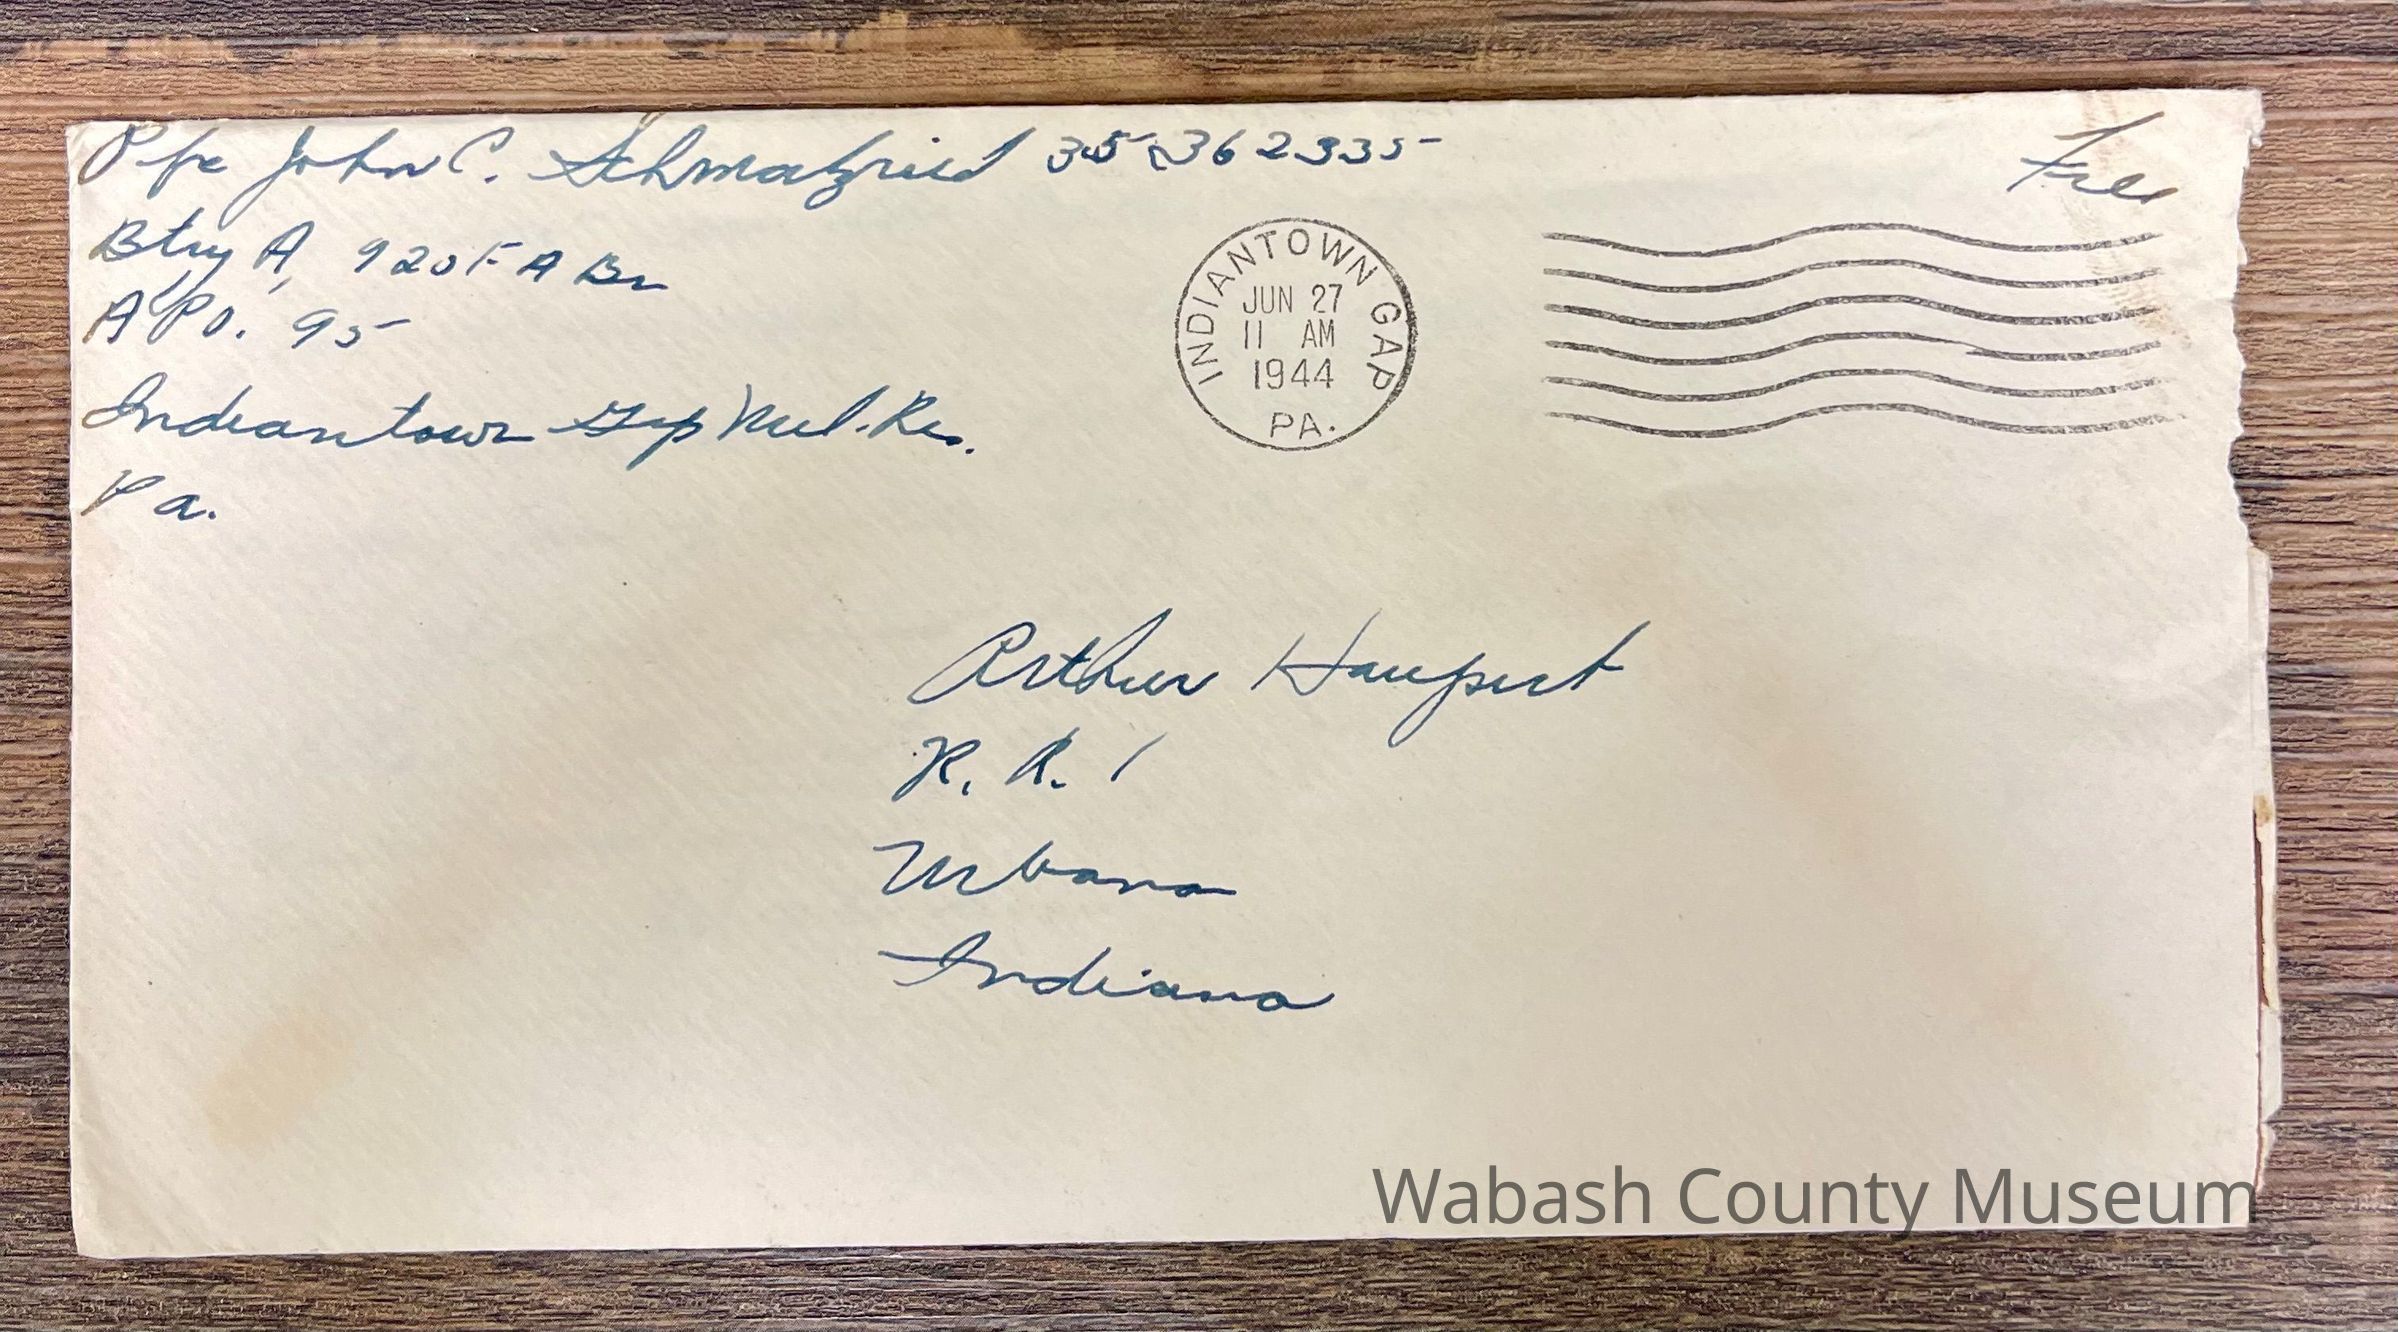 Pfc John C. Schmalzried 35362335
Free
Btry A, 920 F A Bn
A P O. 95
Indiantown Gap Mil. Res.
Pa.
INDIANTOWN GAP
JUN 27
11 AM
1944
PA.
Arthur Haupert
R. R. 1
Urbana
Indiana
Wabash County Museum